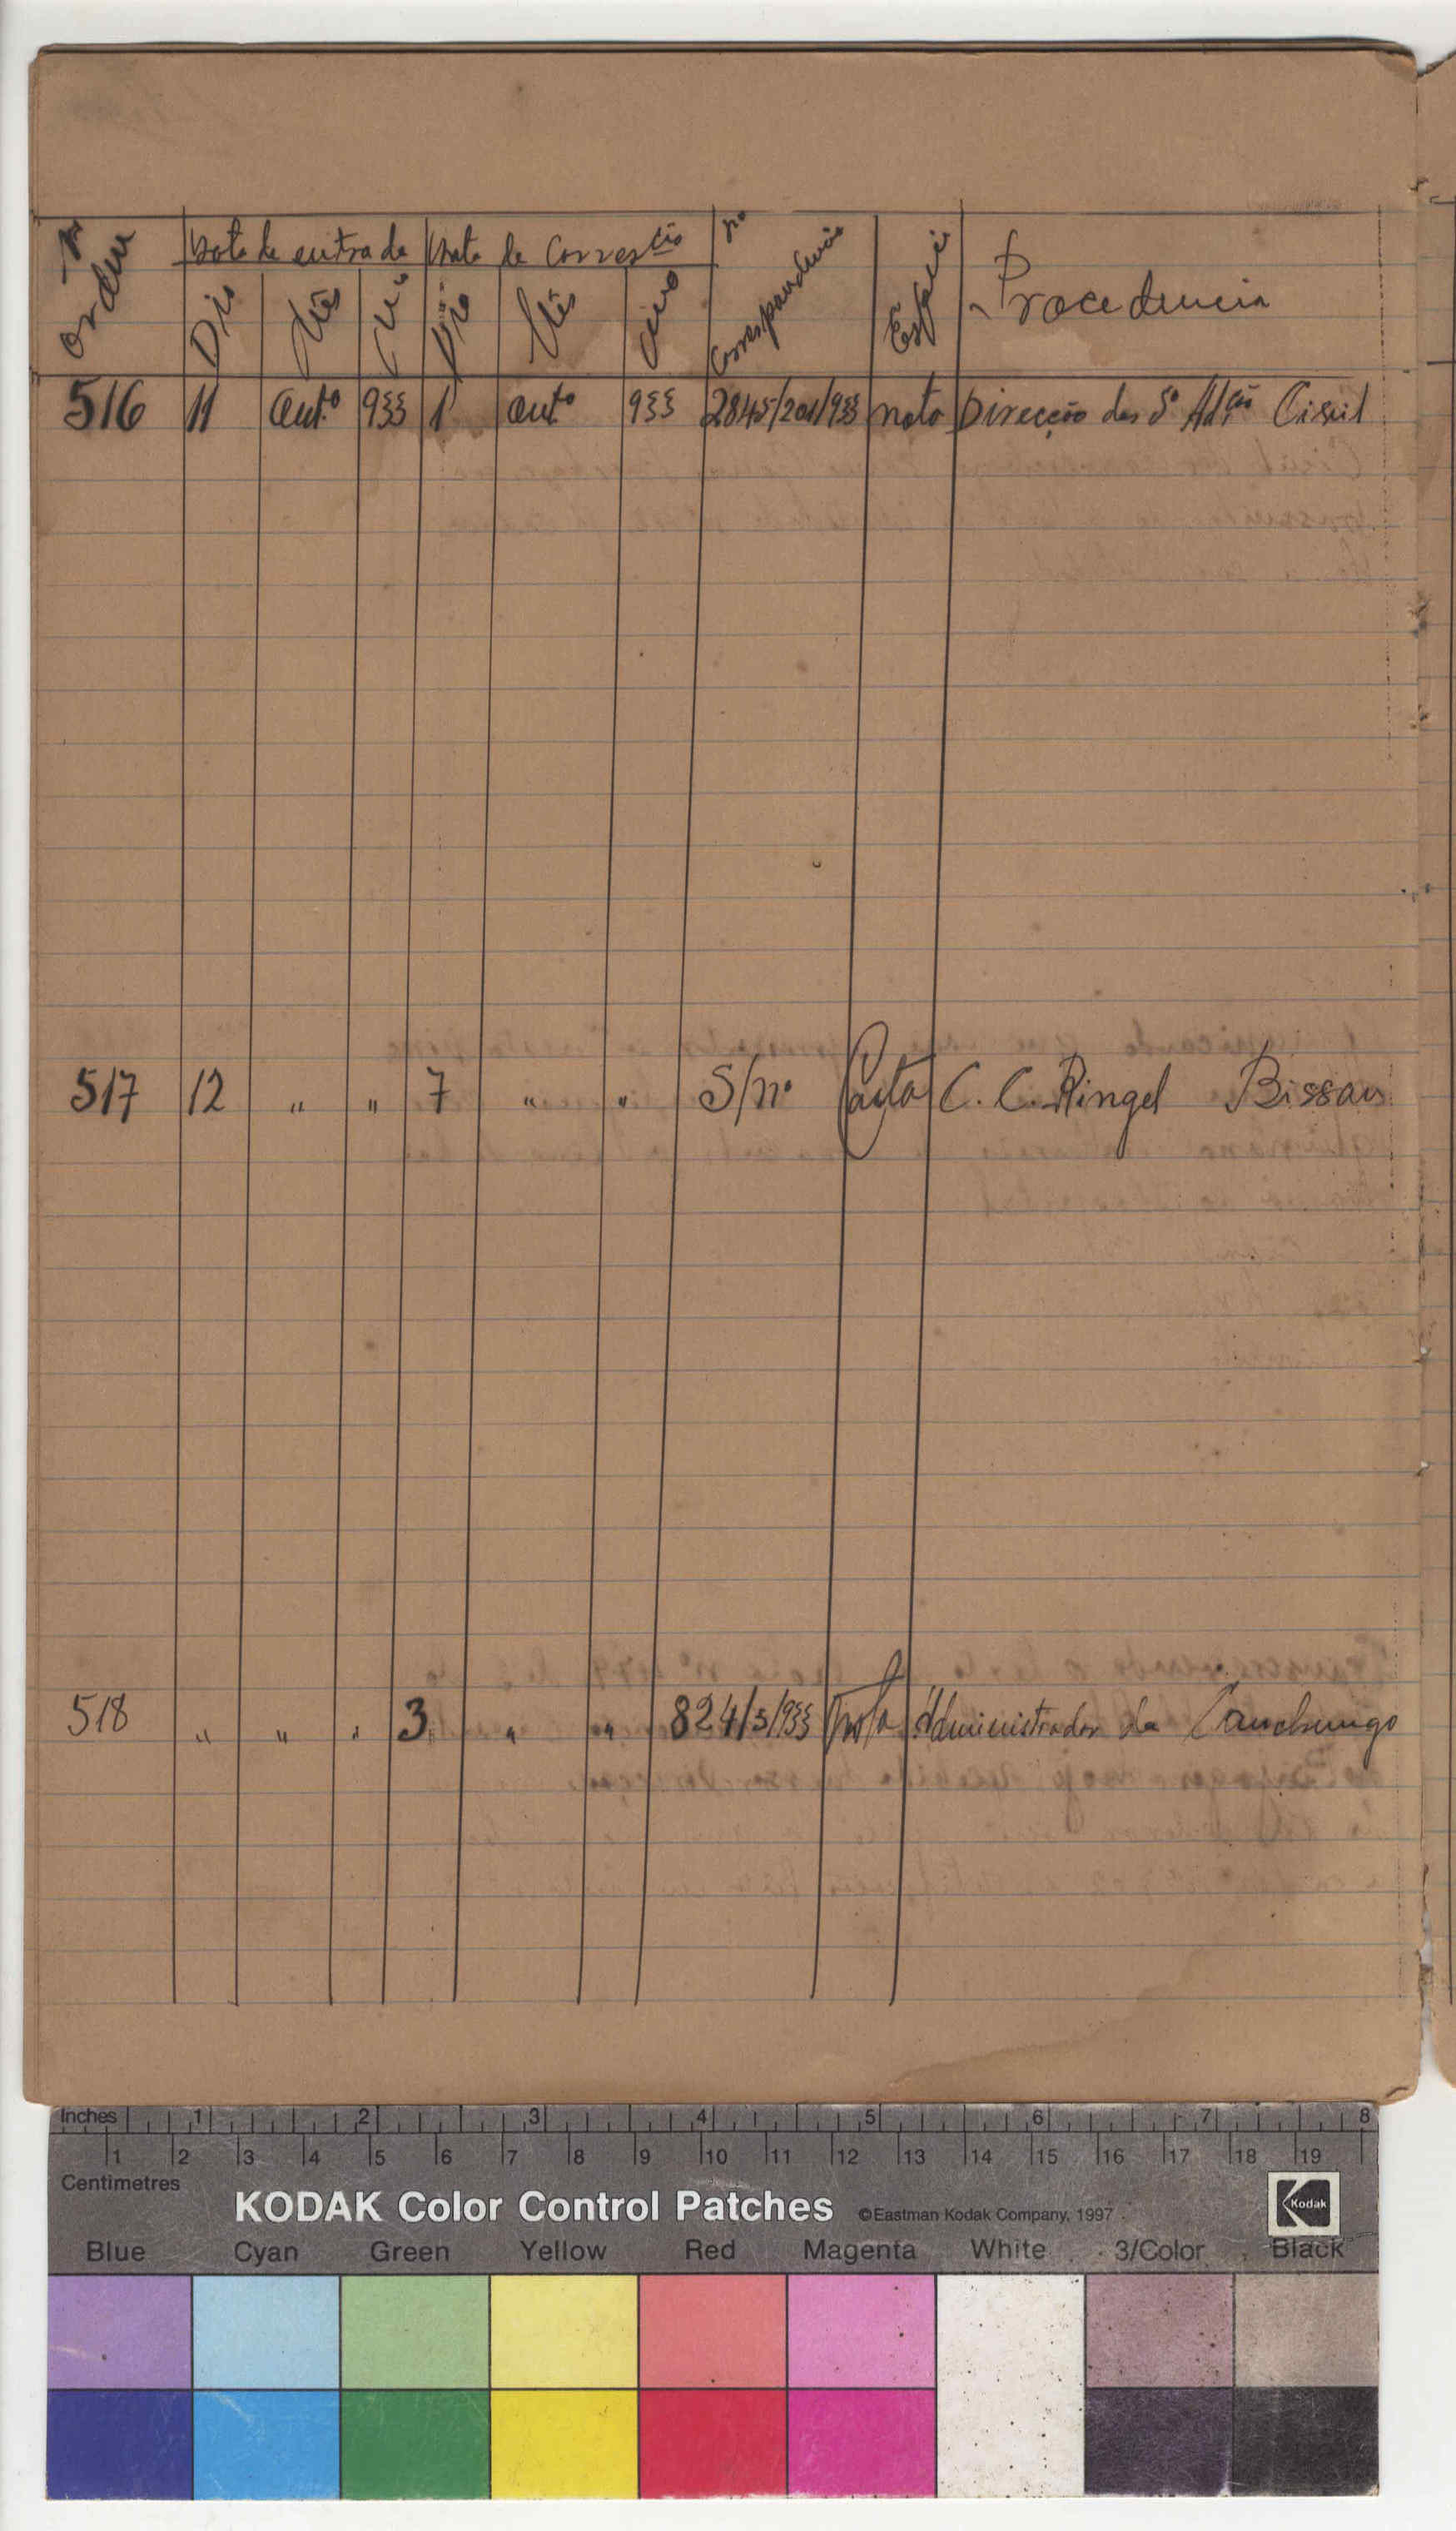 Nº Ordem
Data de entrada Data de Corresp.cia nº Correspondencia Especie Procedencia
Dia Mês Ano Dia Mês Ano
516 11 Out.º 933 1 Out.º 933 2845/201/933 nota Direcção dos S.os Ad.ção Civil
517 12 " " 7 " " S/nº Carta C. C. Ringel Bissau
518 " " " 3 " " 824/3/933 Nota Administrador de Canchungo
Inches 1 2 3 4 5 6 7 8
1 2 3 4 5 6 7 8 9 10 11 12 13 14 15 16 17 18 19
Centimetres
KODAK Color Control Patches ©Eastman Kodak Company, 1997 Kodak
Blue Cyan Green Yellow Red Magenta White 3/Color Black